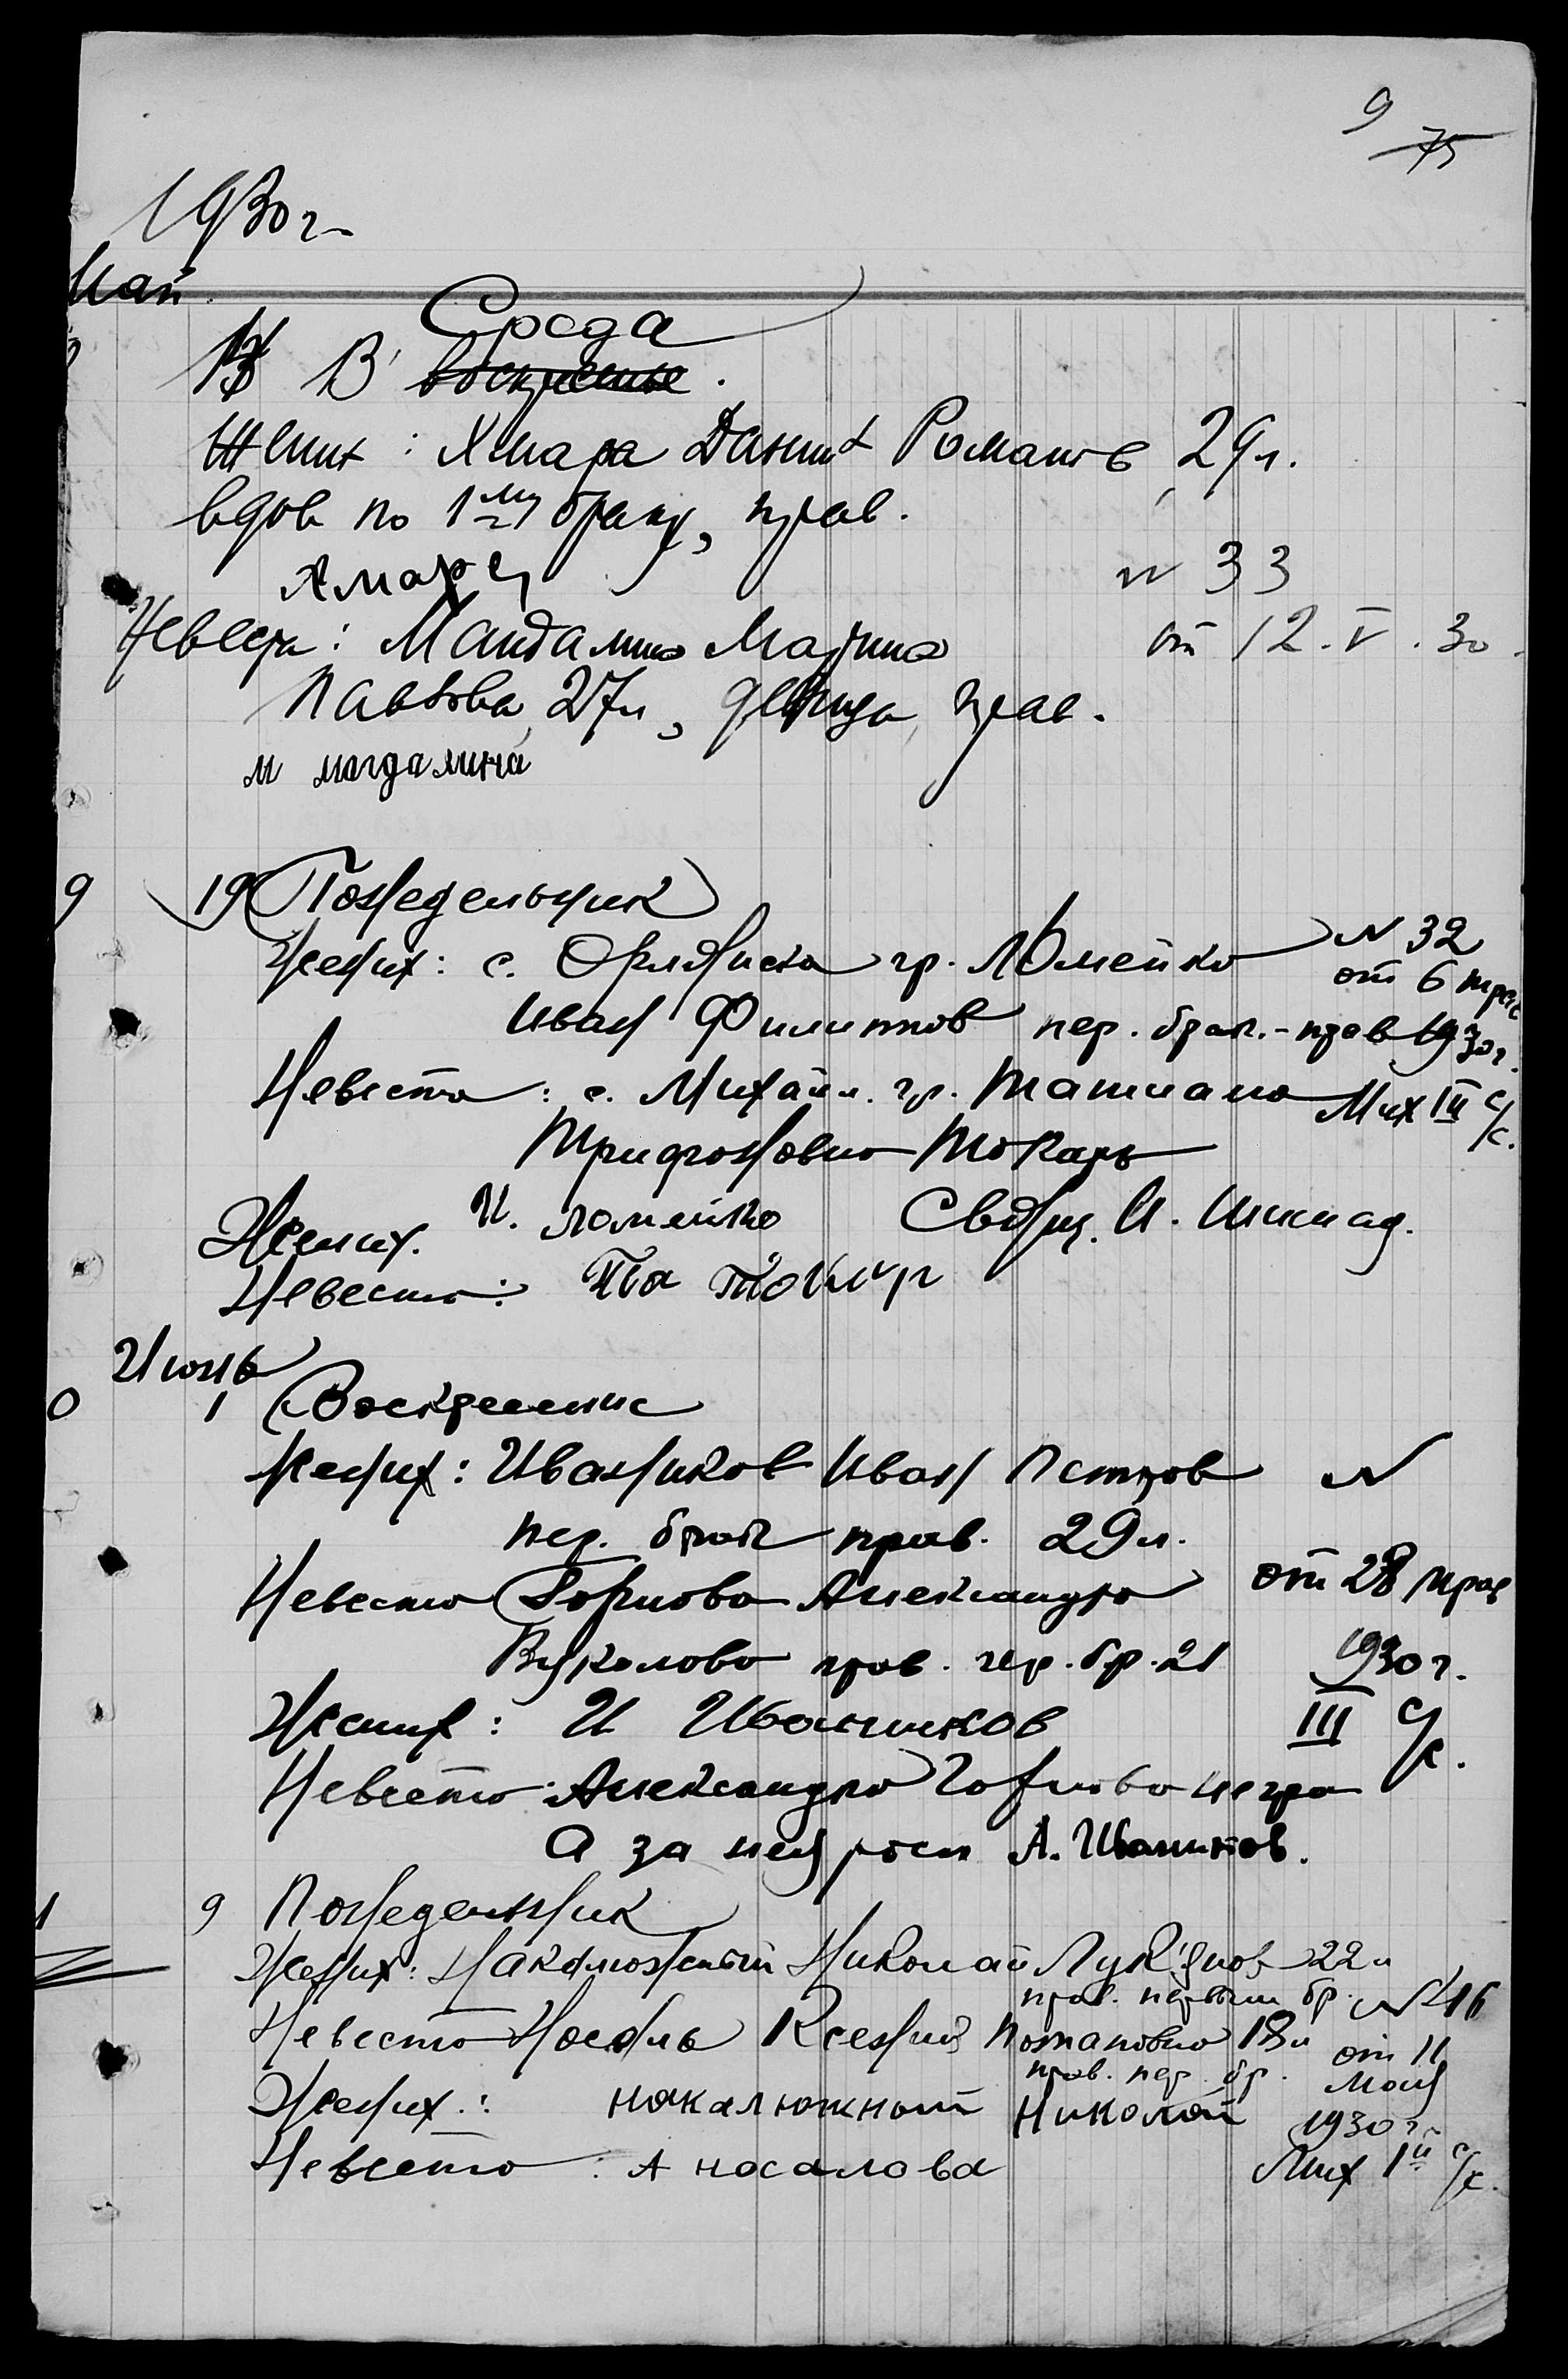 9
75
1930 г.
Май.
Среда
13 В воскресенье.
Жених: Хмара Даниил Романов, 29 л.
вдов по 1му браку, прав.
Хмара
№ 33
Невеста: Магдалина Марина
от 12.V.30.
Павлова, 27 л, девица, прав.
м магдалина
9 19 Понедельник
Жених: с. Орлянска гр. Ломейко
№ 32
от 6 мрая
Иван Филиппов пер. брак. - прав
1930 г.
Невеста: с. Михайл. гр. Татиана
Мих III с/с.
Трифоновна Токарь
Жених. И. ломейко
Свящ. И.
Невеста: Токар
Июнь
0 1 Воскресение
Жених: Иванников Иван Петров
№
пер. брак прав. 29 л.
Невеста Горлова Александра
от 28 мрая
Вуколова прав. пер. бр. 21
1930 г.
Жених: И Иванников
III с/с.
Невеста: Александра Горлова негра
А за неё росп А. Иванников.
1 9 Понедельник
Жених: Накалюжный Николай Лукьянов 22 л
прав. первым бр.
№ 416
Невеста Носаль Ксения Потаповна 18 л
от 11
прав. пер. бр.
Мая
Жених.: накалюжный Николай
1930 г.
Невеста: А носалова
Мих 1й с/с.